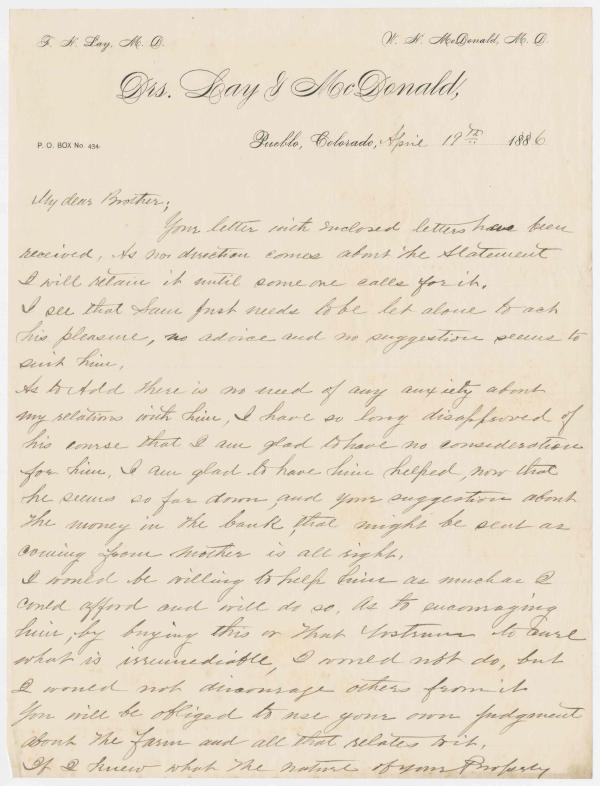 F. H. Lay, M. D.
W. H. McDonald, M. D.
Drs. Lay & McDonald,
P. O. BOX No. 434.
Pueblo, Colorado, April 19th 1886
My dear Brother;
Your letter with enclosed letters have been
received. As no direction comes about the Statement
I will retain it until some one calls for it.
I see that Sam just needs to be let alone to act
his pleasure, no advice and no suggestion seems to
suit him.
As to Add there is no need of any anxiety about
my relations with him, I have so long disapproved of
his course that I am glad to have no consideration
for him. I am glad to have him helped, now that
he seems so far down, and your suggestion about
the money in the bank, that might be sent as
coming from Mother is all right.
I would be willing to help him as much as I
could afford and will do so. As to encouraging
him, by buying this or that Nostrum to cure
what is irremediable, I would not do, but
I would not discourage others from it
You will be obliged to use your own judgment
about the farm and all that relates to it.
If I knew what the nature of your Property